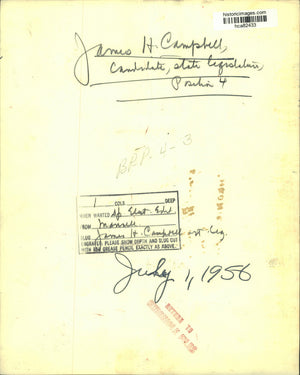 historicimages.com
hca82433
James H. Campbell,
Candidate, state legislature,
Position 4
BRP. 4-3
1 COLS DEEP
WHEN WANTED
FROM Mansell
SLUG James H. Campbell
ENGRAVER: PLEASE SHOW DEPTH AND SLUG CUT
WITH RED GREASE PENCIL EXACTLY AS ABOVE.
July 1, 1956
RETURN TO